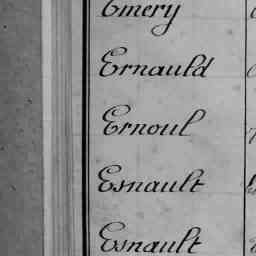 Emery
Ernauld
Ernoul
Esnault
Esnault